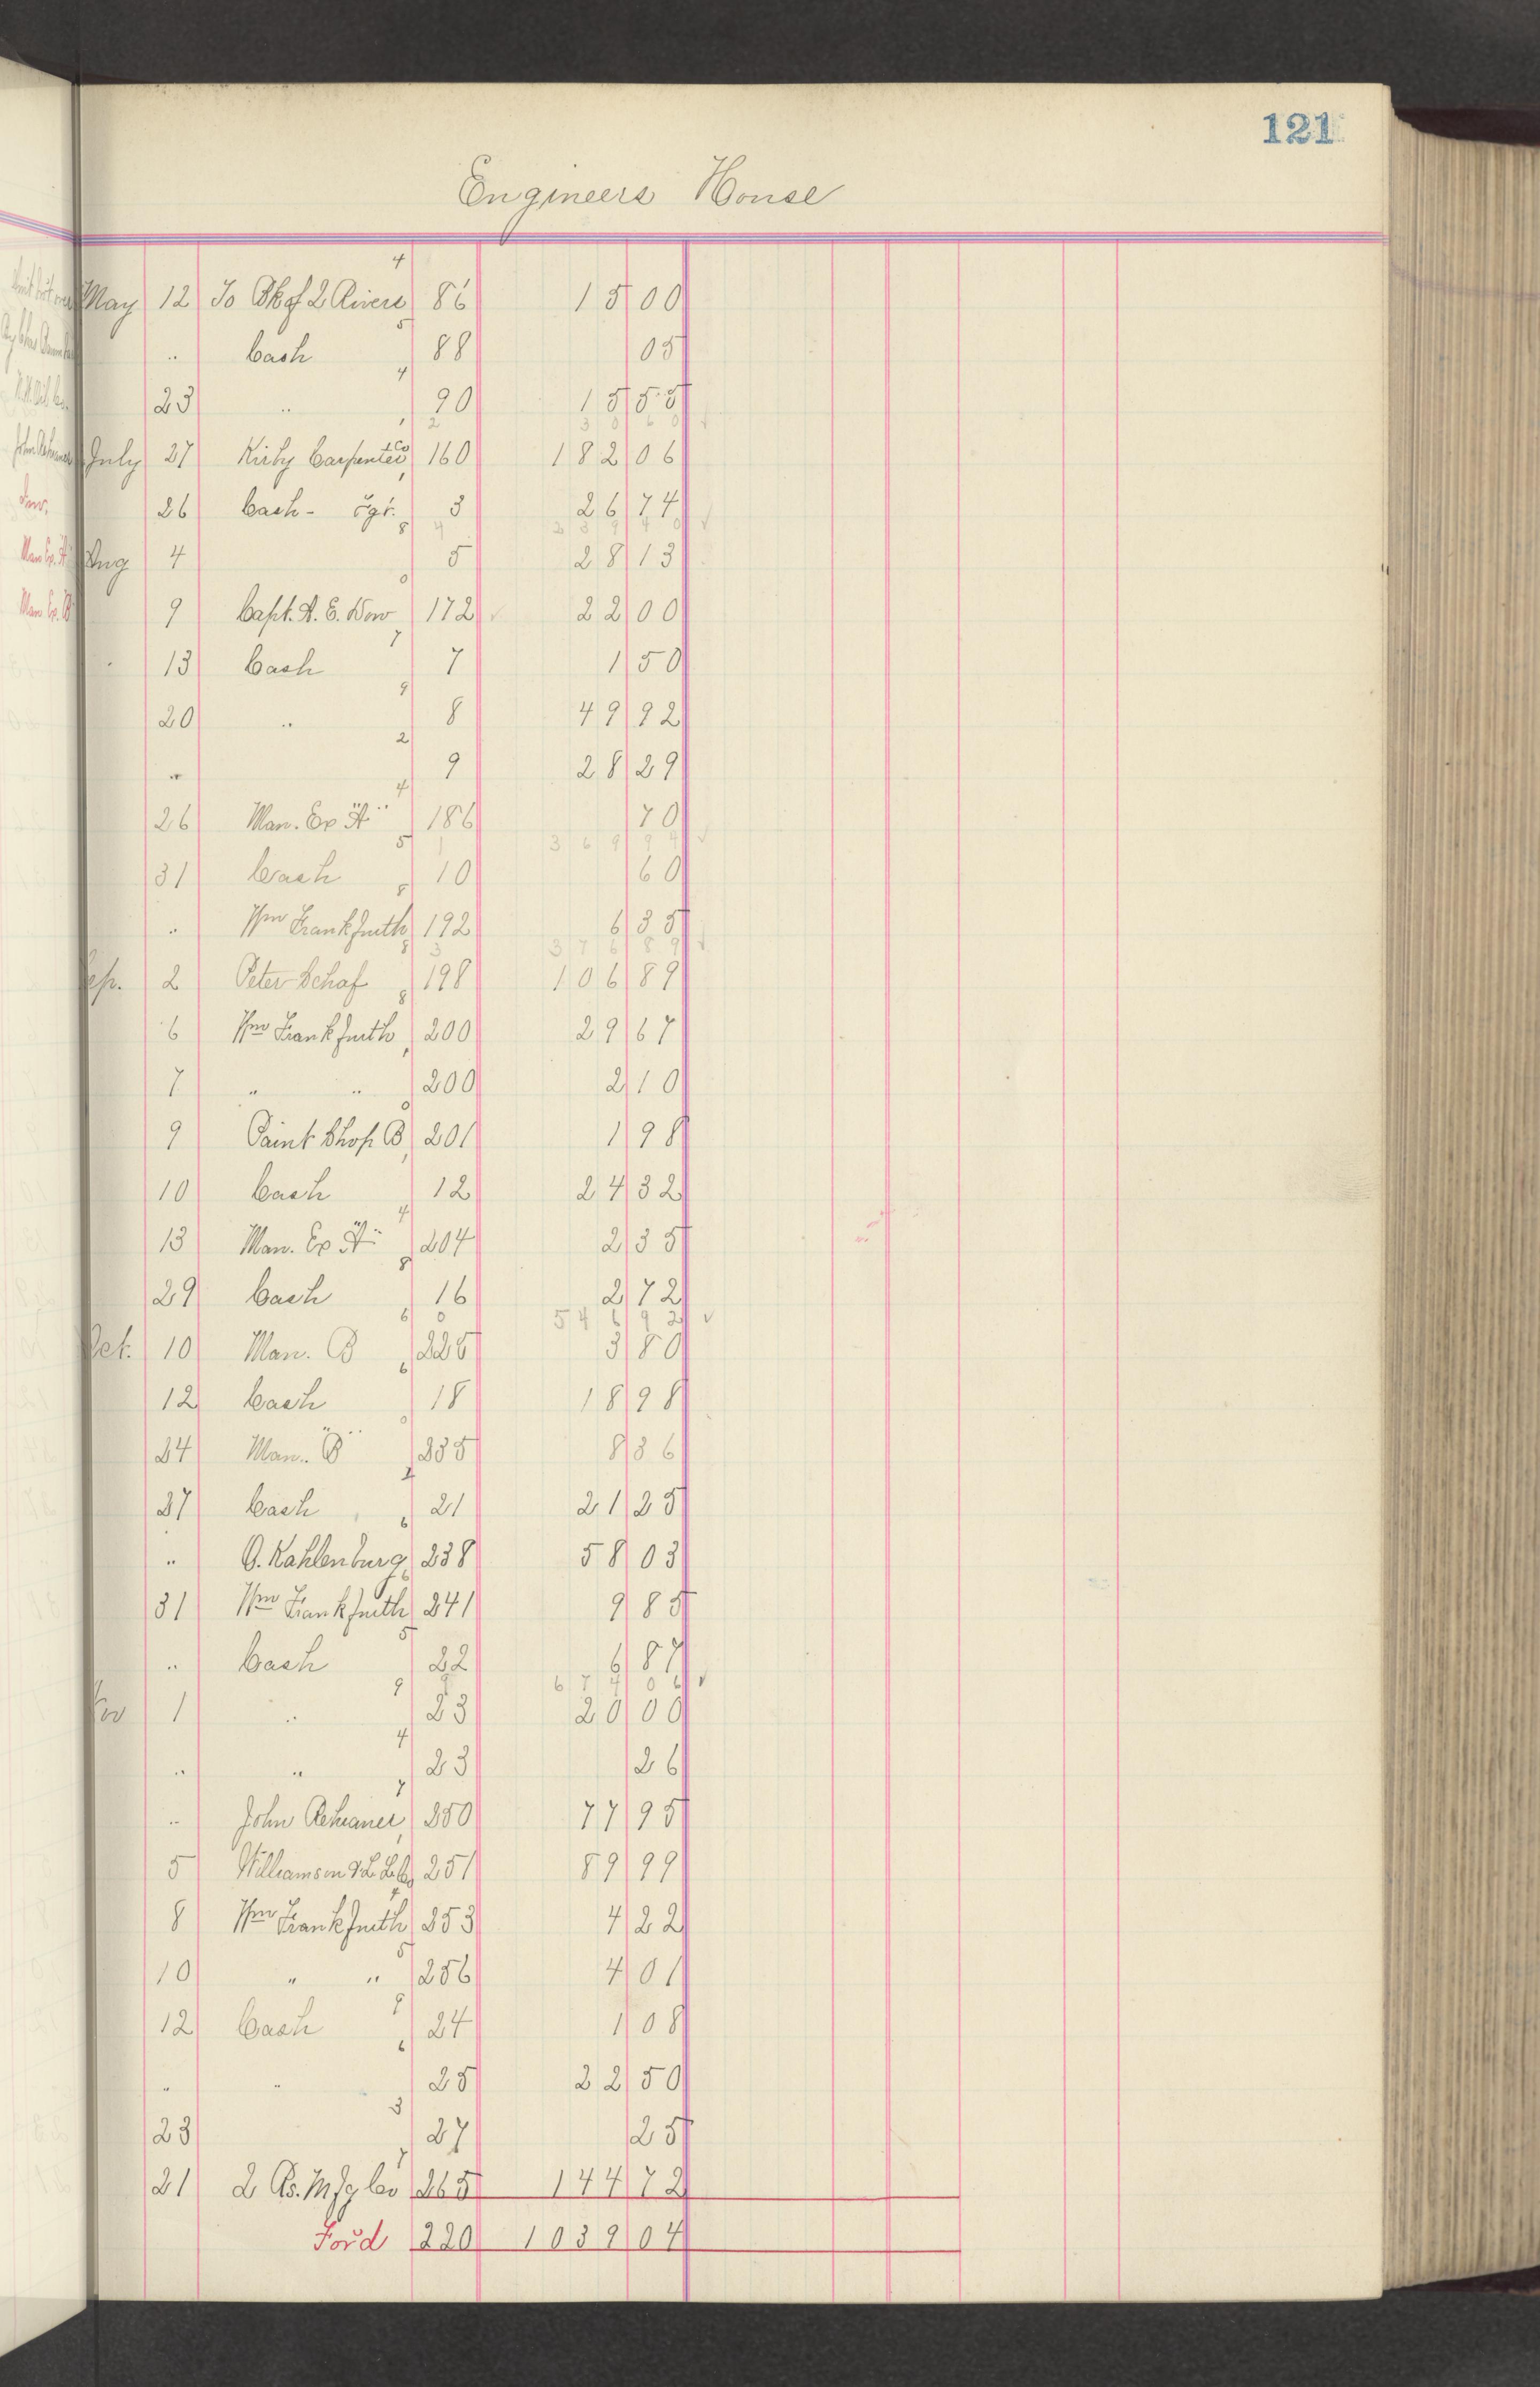 121
Engineers House
4
May 12 To Bk of 2 Rivers 86 15 00
5
" Cash 88 05
4
23 " 90 15 55
2 30 60 ✓
July 27 Kirby Carpenter Co 160 182 06
26 Cash - cgr. 3 26 74
8 4 239 40 ✓
Aug 4 5 28 13
0
9 Capt. A. E. Dow 172 ✓ 22 00
7
13 Cash 7 1 50
9
20 " 8 49 92
2
" 9 28 29
4
26 Man. Ex "A" 186 70
5 1 369 94 ✓
31 Cash 10 60
8
" Wm Frankfurth 192 6 35
8 3 376 89 ✓
Sep. 2 Peter Schaf 198 106 89
8
6 Wm Frankfurth 200 29 67
7 " " 200 2 10
0
9 Paint Shop B 201 1 98
10 Cash 12 24 32
4
13 Man. Ex "A" 204 2 35
8
29 Cash 16 2 72
6 0 546 92 ✓
Oct. 10 Man. B 225 3 80
6
12 Cash 18 18 98
0
24 Man. "B" 235 8 36
2
27 Cash 21 21 25
6
" O. Kahlenburg 238 58 03
6
31 Wm Frankfurth 241 9 85
5
" Cash 22 6 87
9 674 06 ✓
Nov 1 " 23 20 00
4
" " 23 26
7
" John Rehaner 250 77 95
5 Williamson & L. L. Co 251 89 99
4
8 Wm Frankfurth 253 4 22
5
10 " " 256 4 01
9
12 Cash 24 1 08
6
" " 25 22 50
3
23 27 25
7
21 2 Rs. Mfg Co 265 144 72
For'd 220 1039 04